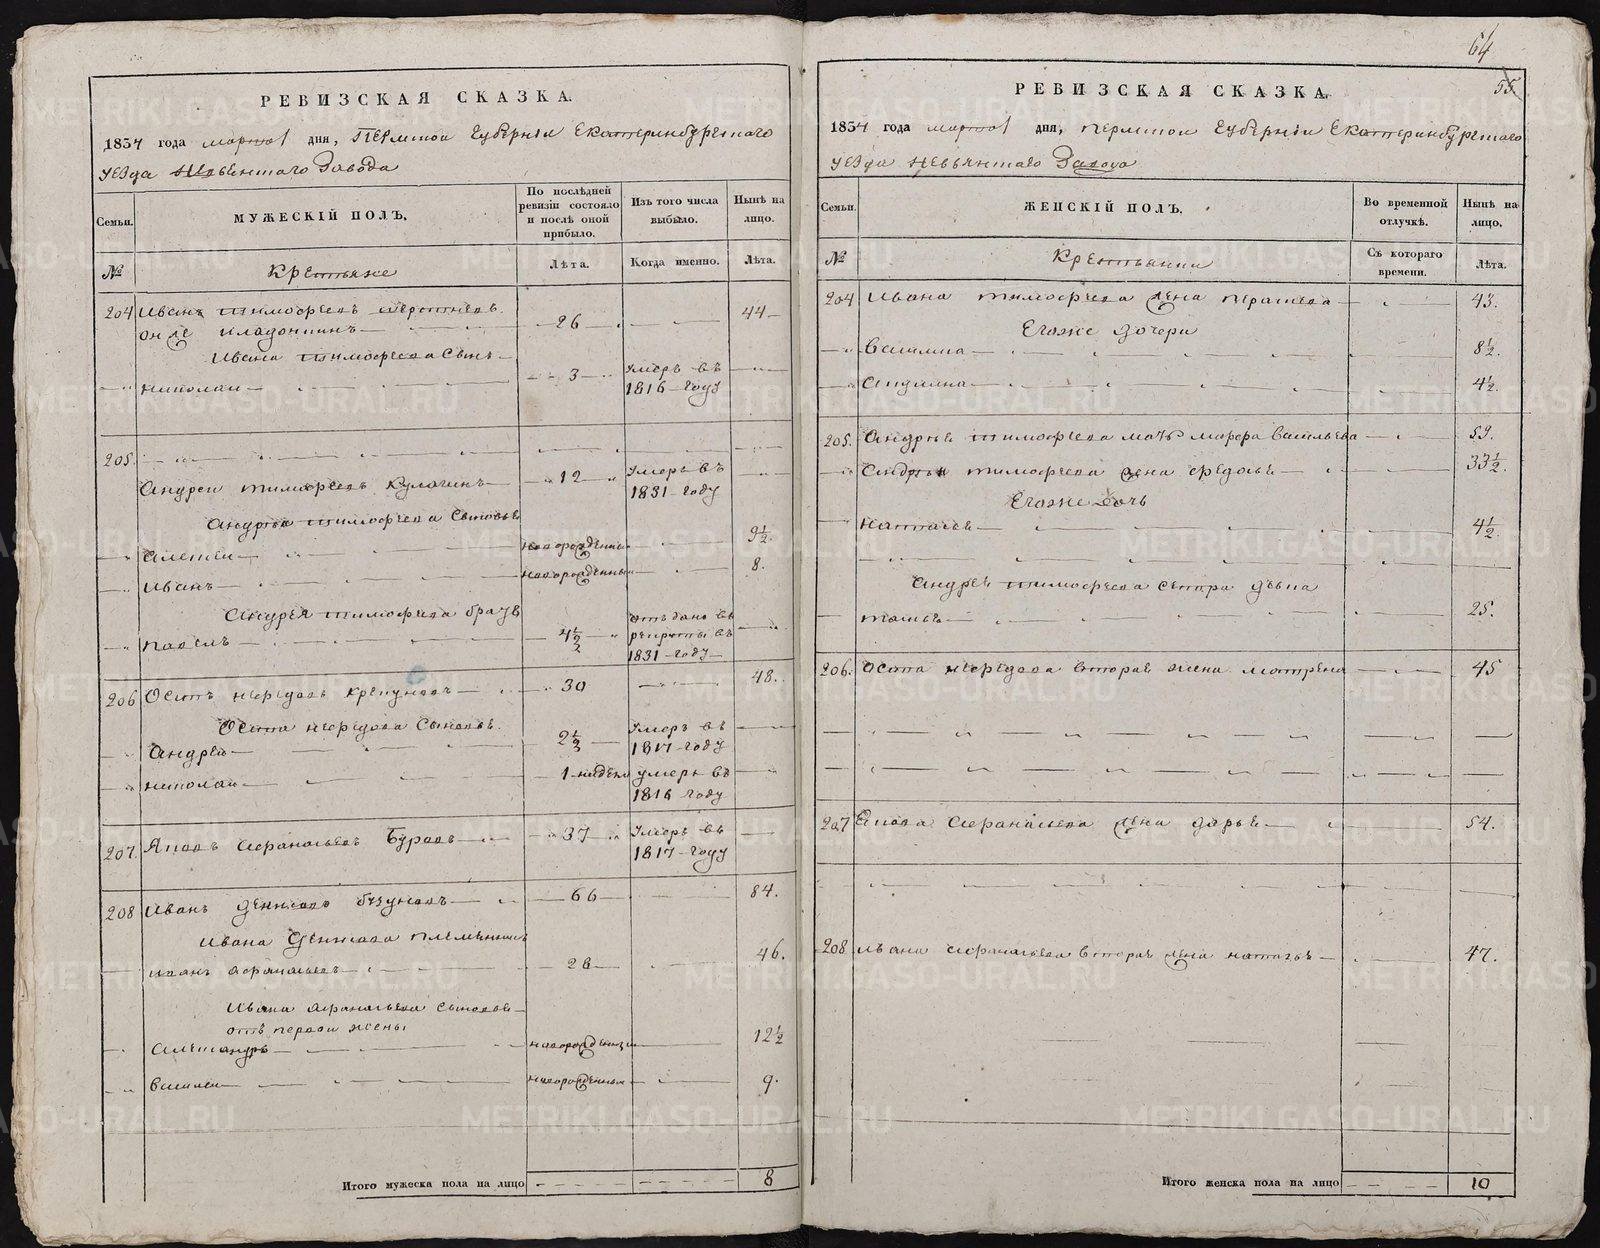 64
РЕВИЗСКАЯ СКАЗКА.
1834 года марта 1 дня, Пермской Губернии Екатеринбургскаго
уезда Невьянскаго Завода
Семьи.
МУЖЕСКІЙ ПОЛЪ.
По послѣдней ревизіи состояло и послѣ оной прибыло.
Изъ того числа выбыло.
Нынѣ на лицо.
№
Крестьяне
Лѣта.
Когда именно.
Лѣта.
204 Иванъ Тимофеевъ
онже 26 44
Ивана Тимофеева сынъ
Николаи 3 Умеръ въ 1816 году
205.
Андреи Тимофеевъ Кулагинъ 12 Умеръ въ 1831 году
Андрея Тимофеева сыновья
Алексеи новорожденныи 9½.
Иванъ новорожденныи 8.
Андрея Тимофеева братъ
Павелъ 4½ отъдано въ рекруты въ 1831 году
206 Осипъ Нефедовъ 30 48.
Осипа Нефедова сыновья
Андреи 2½ Умеръ въ 1817 году
Николаи 1 недели умеръ въ 1816 году
207. Яковъ Афанасьевъ Буровъ 37 Умеръ въ 1817 году
208 Иванъ Денисовъ 66 84.
Ивана Денисова племянникъ
Иванъ Афанасьевъ 28 46.
Ивана Афанасьева сыновья
отъ первои жены
Александръ новорожденныи 12½
Василеи новорожденныи 9.
Итого мужеска пола на лицо 8
55
РЕВИЗСКАЯ СКАЗКА.
1834 года марта 1 дня, Пермской Губернии Екатеринбургскаго
уезда Невьянскаго Завода
Семьи.
ЖЕНСКІЙ ПОЛЪ.
Во временной отлучкѣ.
Нынѣ на лицо.
№
Крестьянки
Съ котораго времени.
Лѣта.
204 Ивана Тимофеева жена 43.
Егоже дочери
Василиса 8½.
Акулина 4½.
205. Андрея Тимофеева мать Марфа Васильева 59.
Андрея Тимофеева жена Федосья 33½.
Егоже дочь
Наталья 4½.
Андрея Тимофеева сестра девка
Татьяна 25.
206. Осипа Нефедова вторая жена Матрена 45
207 Якова Афанасьева жена Дарья 54.
208 Ивана Афанасьева вторая жена Наталья 47.
Итого женска пола на лицо 10
METRIKI.GASO-URAL.RU